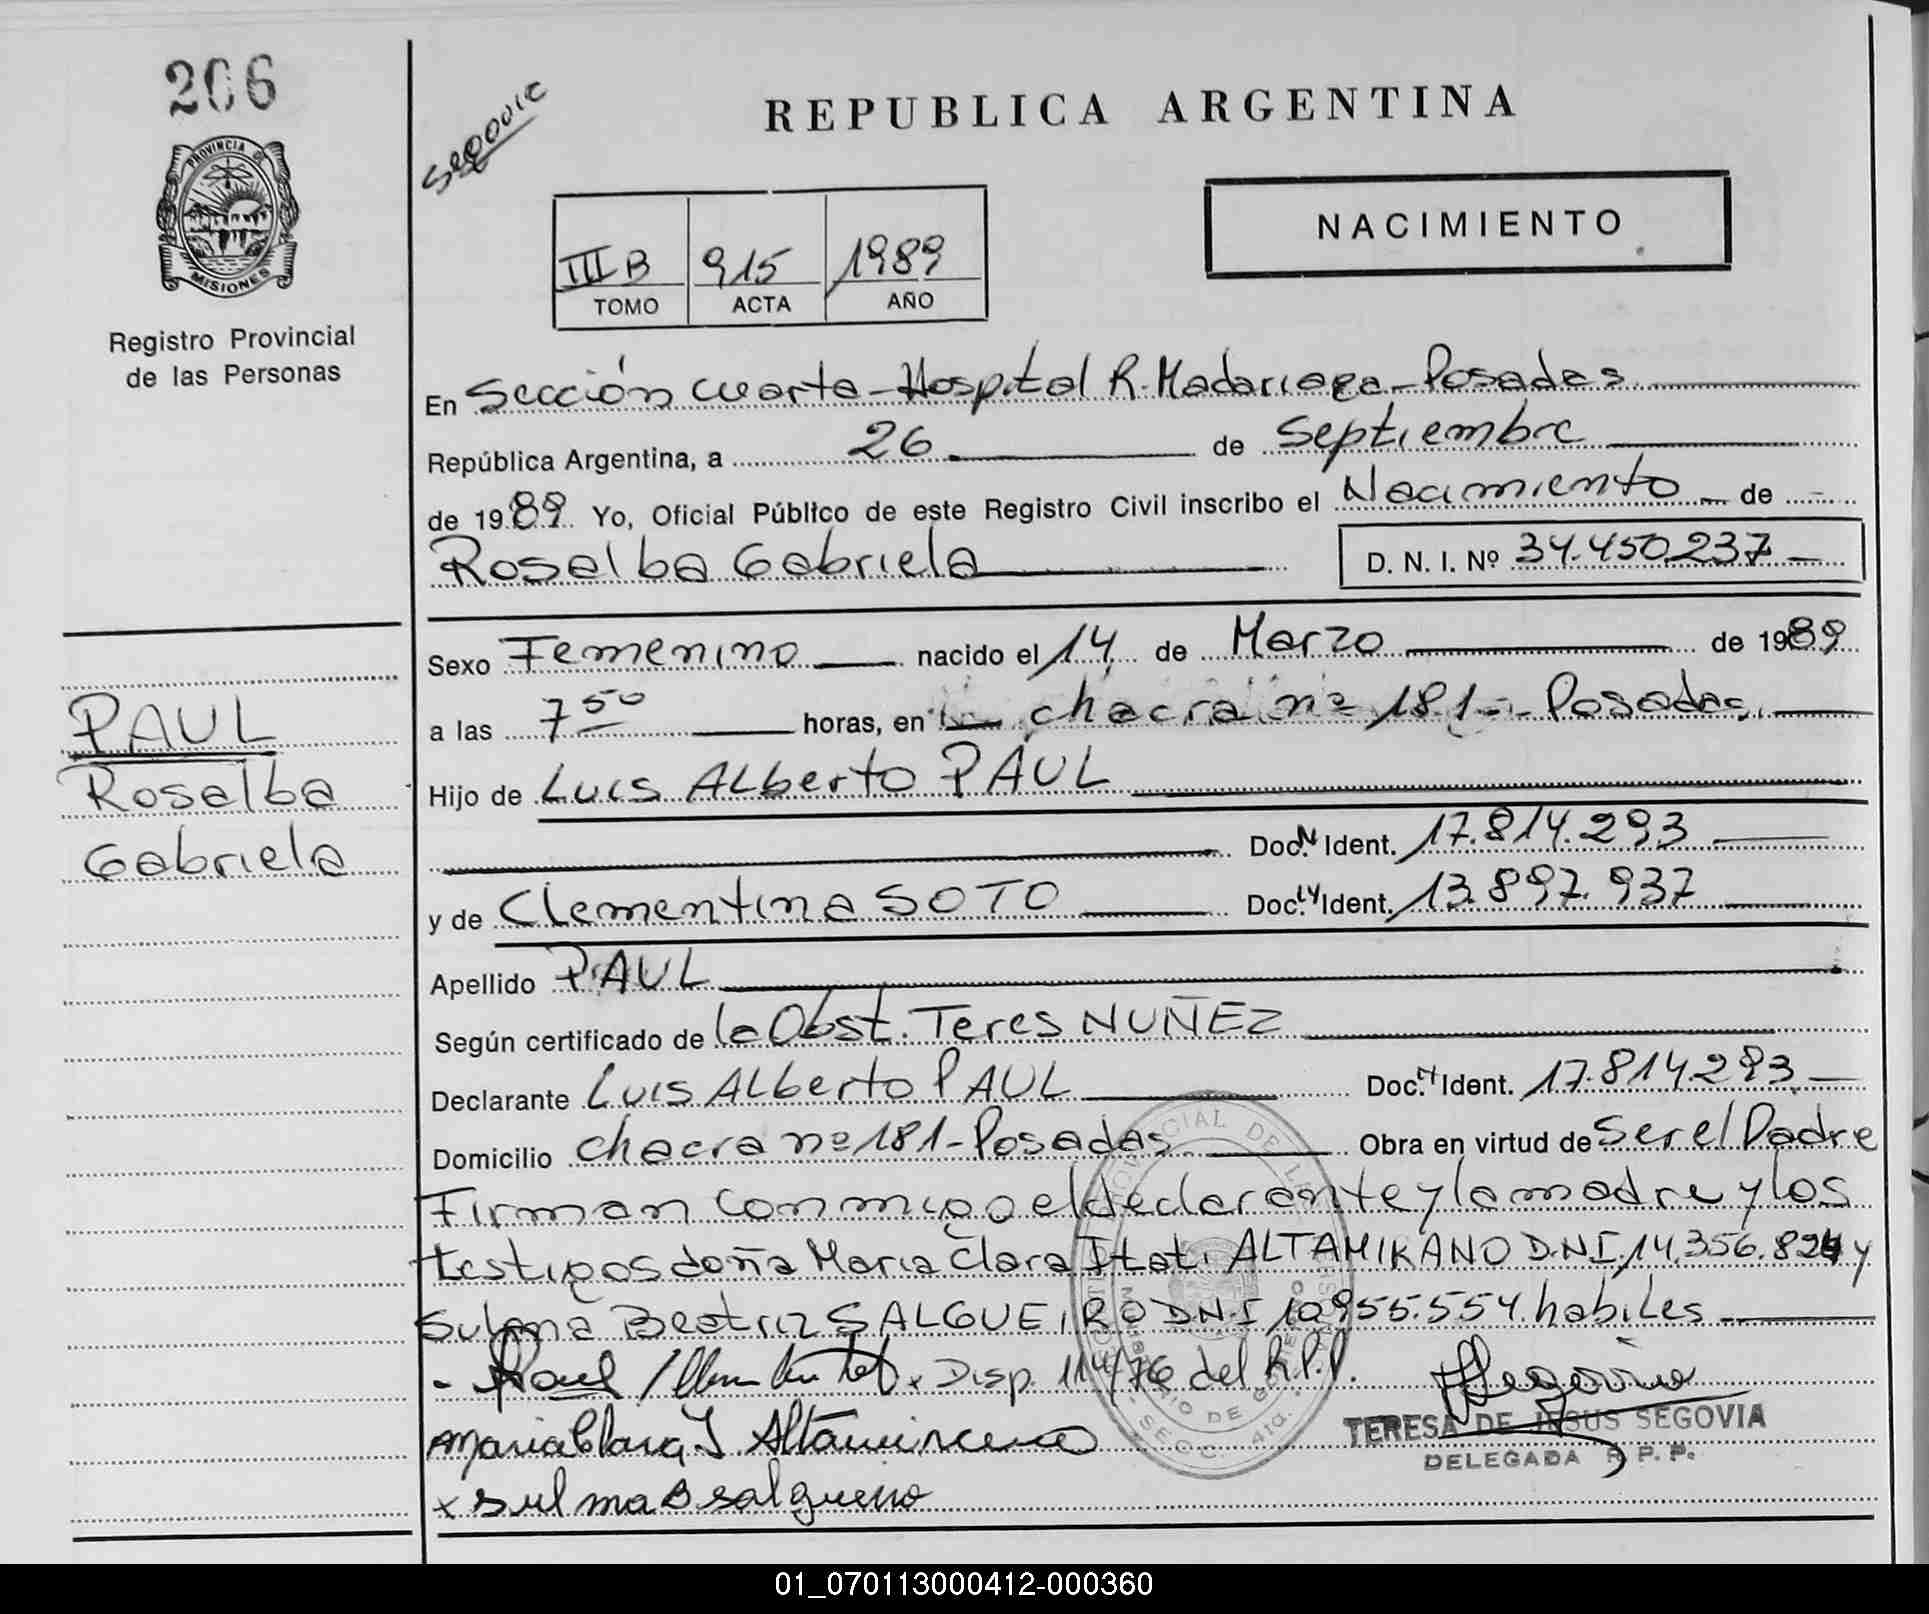 206
PROVINCIA DE
MISIONES
Registro Provincial
de las Personas
PAUL
Rosalba
Gabriela
Segovia
REPUBLICA ARGENTINA
NACIMIENTO
III B 915 1989
TOMO ACTA AÑO
En Sección cuarta - Hospital R. Madariaga - Posadas
República Argentina, a 26 de Septiembre
de 1989 Yo, Oficial Público de este Registro Civil inscribo el Nacimiento de
Rosalba Gabriela D. N. I. Nº 34.450.237
Sexo Femenino nacido el 14 de Marzo de 1989
a las 7 50 horas, en chacra nº 181 - Posadas
Hijo de Luis Alberto PAUL
Doc. N. Ident. 17.814.293
y de Clementina SOTO Doc. Ident. 13.897.937
Apellido PAUL
Según certificado de la Obst. Teres NUÑEZ
Declarante Luis Alberto PAUL Doc. Ident. 17.814.293
Domicilio chacra nº 181 - Posadas Obra en virtud de Ser el Padre
Firman conmigo el declarante y la madre y los
testigos doña Maria Clara Itati ALTAMIRANO D.N.I. 14.356.824 y
Sulma Beatriz SALGUEIRO D.N.I 10.955.554. habiles
Disp. 114/76 del R.P.P.
Maria Clara I Altamirano
TERESA DE JESUS SEGOVIA
DELEGADA R. P. P.
x Sulma B Salgueiro
01_070113000412-000360